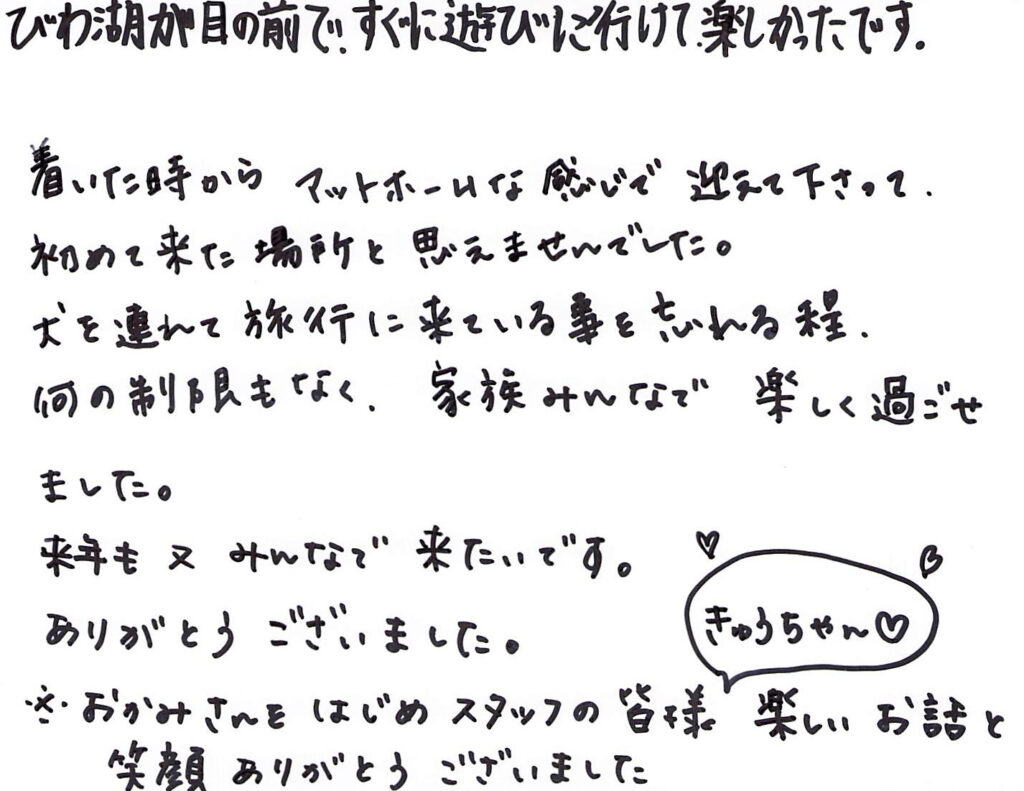 びわ湖が目の前で、すぐに遊びに行けて、楽しかったです。
着いた時から アットホームな 感じで 迎えて下さって、
初めて来た場所と思えませんでした。
犬を連れて旅行に来ている事を忘れる程、
何の制限もなく、家族みんなで 楽しく過ごせ
ました。
来年も又 みんなで 来たいです。
ありがとう ございました。
きゅうちゃん♡
※ おかみさんを はじめ スタッフの 皆様 楽しい お話と
笑顔 ありがとう ございました